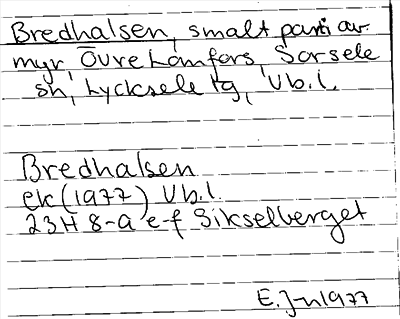 Bredhalsen, smalt parti av
myr, Övre Lomfors, Sorsele
sn, Lycksele tg, Vb.l.
Bredhalsen
ek (1977) Vb.l.
23H 8-a e-f Sikselberget
E.J-n 1977